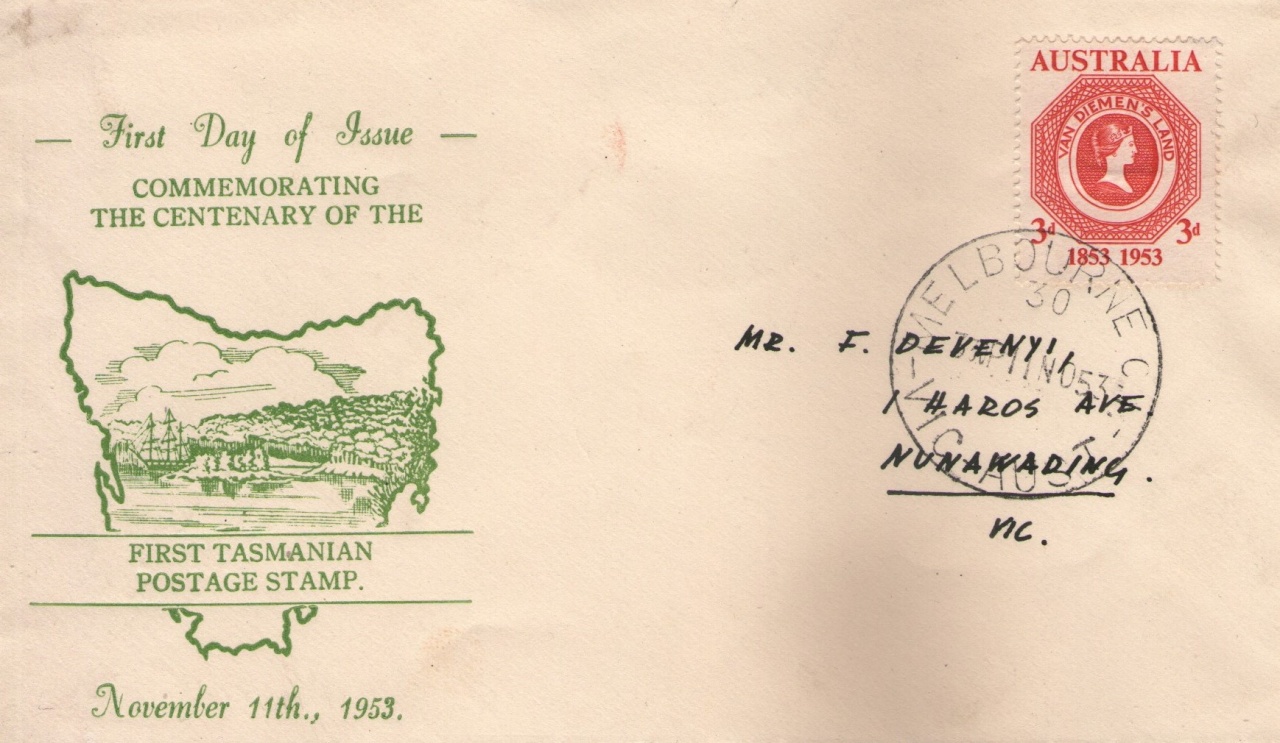 First Day of Issue
COMMEMORATING
THE CENTENARY OF THE
FIRST TASMANIAN
POSTAGE STAMP.
November 11th., 1953.
AUSTRALIA
VAN DIEMEN'S LAND
3d 3d
1853 1953
MELBOURNE C.1
30
11NO53
VIC-AUST
MR. F. DEVENYI,
1 HAROS AVE
NUNAWADING.
VIC.